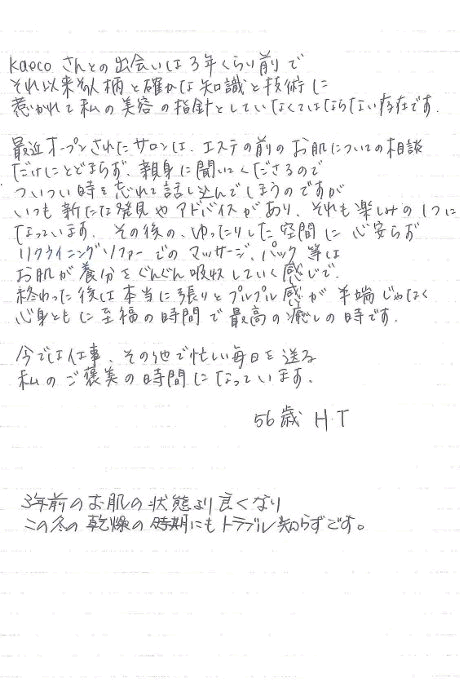 kaecoさんとの出会いは3年くらい前で
それ以来お人柄と確かな知識と技術に
惹かれて私の美容の指針としていなくてはならない存在です。
最近オープンされたサロンは、エステの前のお肌についての相談
だけにとどまらず、親身に聞いてくださるので
ついつい時を忘れて話し込んでしまうのですが
いつも新たな発見やアドバイスがあり、それも楽しみの1つに
なっています。その後の、ゆったりした空間に心安らず
リクライニングソファーでのマッサージ、パック等は
お肌が養分をぐんぐん吸収していく感じで、
終わった後は本当に張りとプルプル感が半端じゃなく
心身ともに至福の時間で最高の癒しの時です。
今では仕事、その他で忙しい毎日を送る
私のご褒美の時間になっています。
56歳 H・T
3年前のお肌の状態より良くなり
この冬の乾燥の時期にもトラブル知らずです。